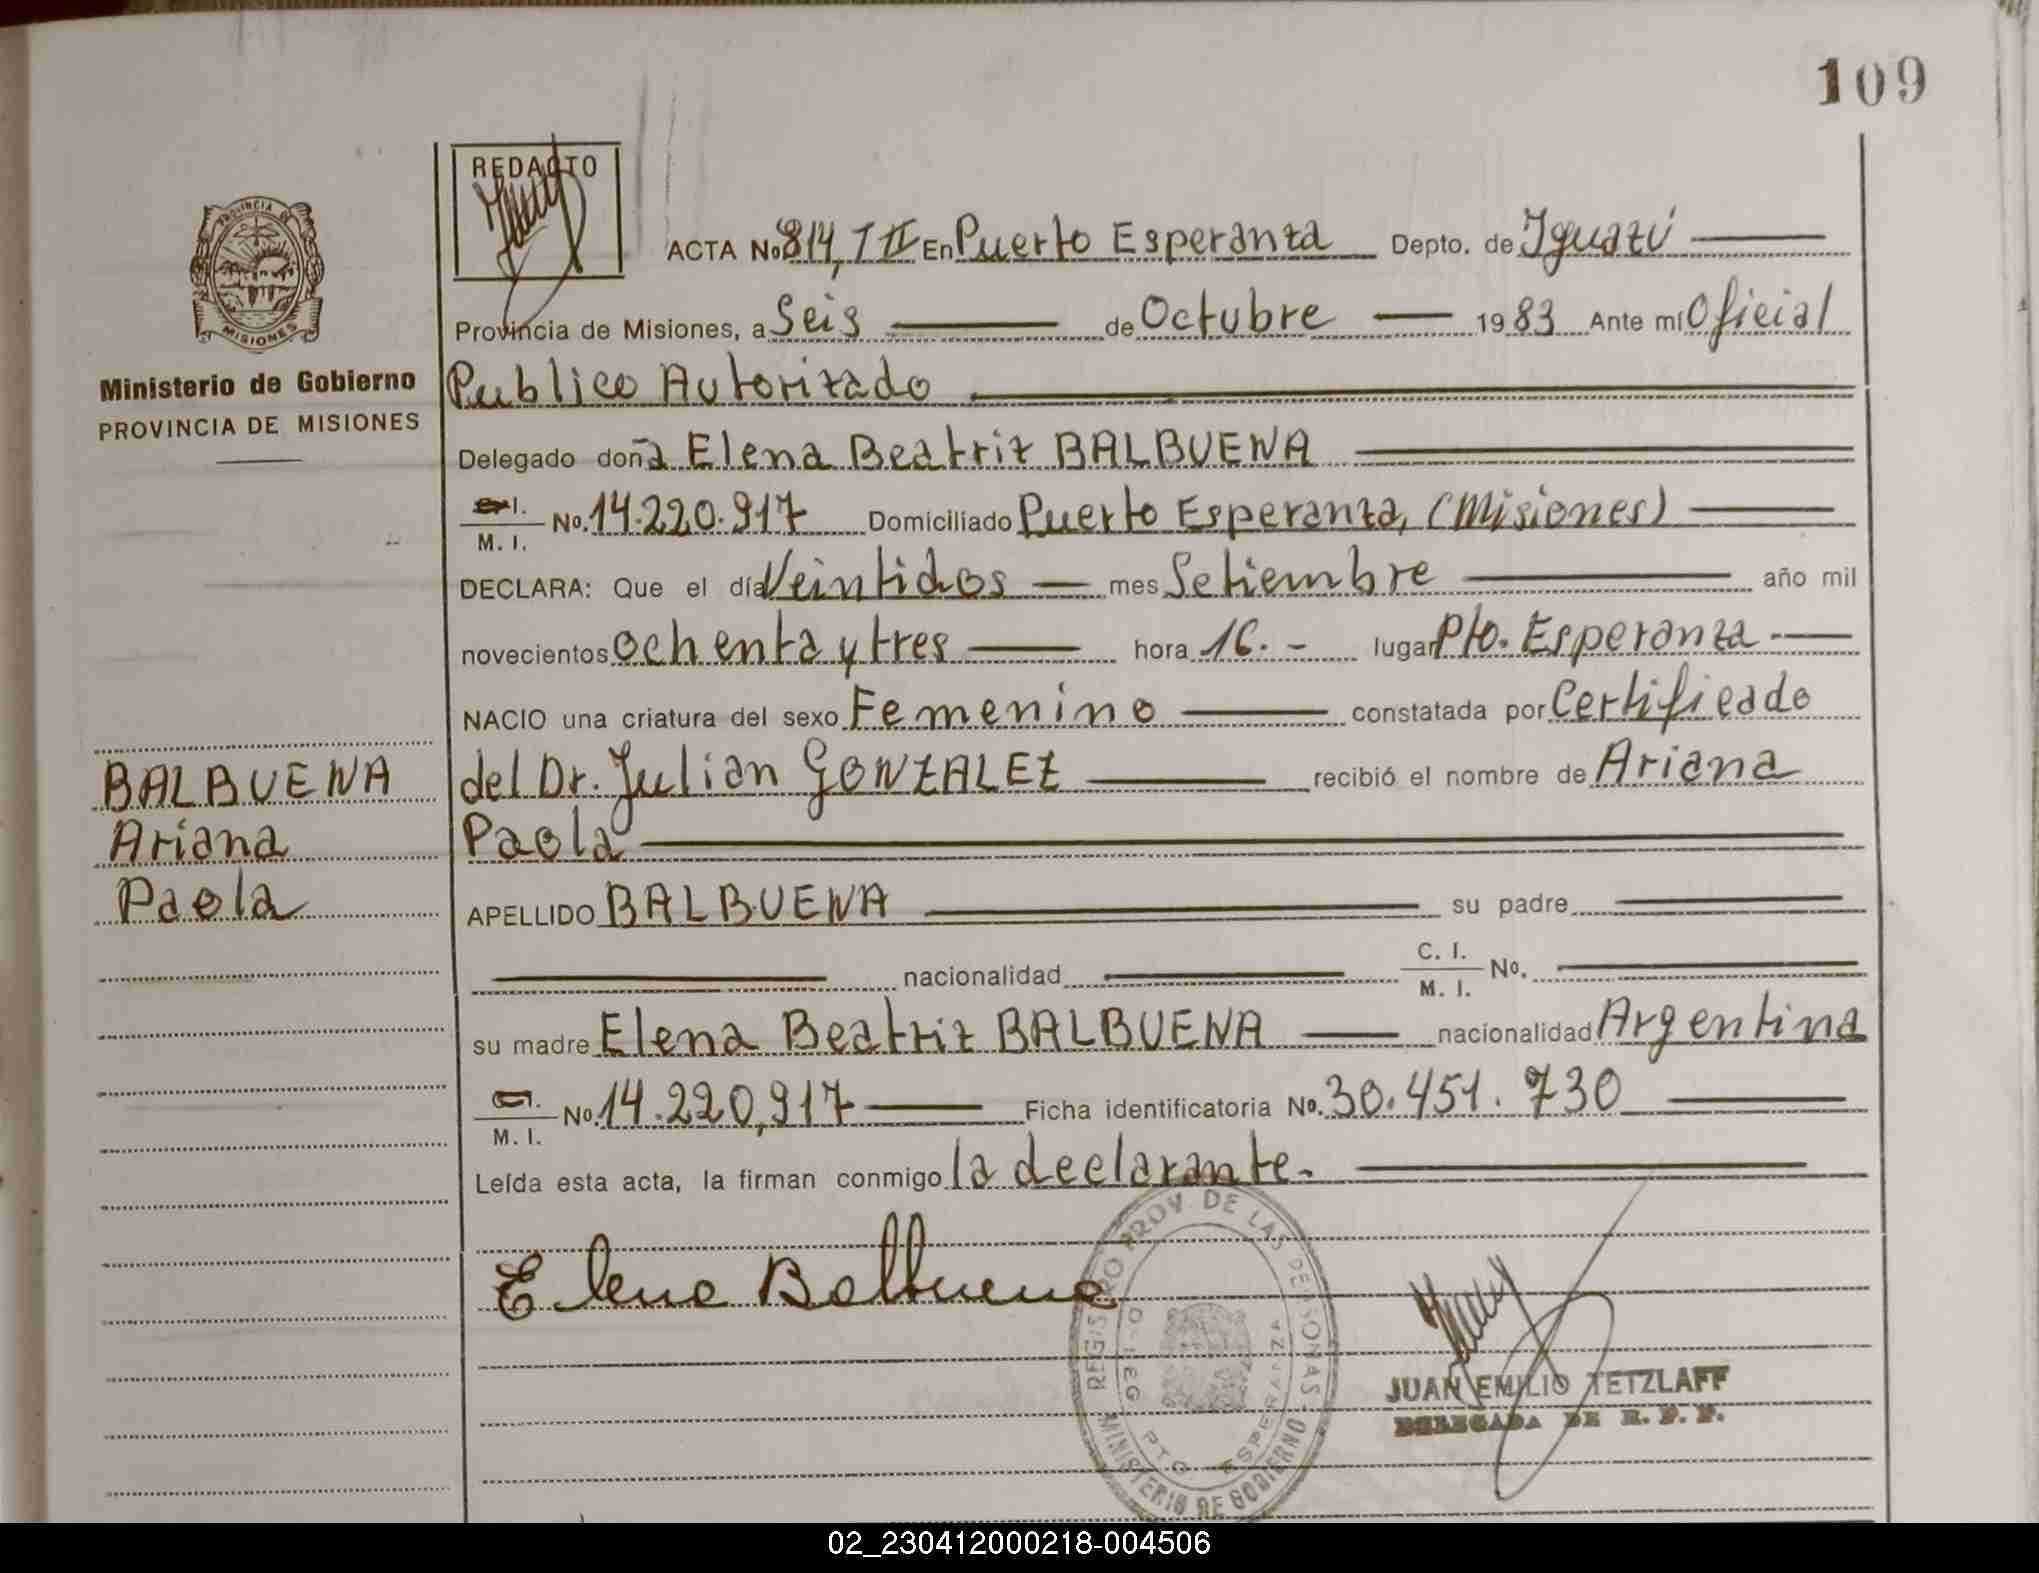 109
REDACTO
ACTA No. 814, T II En Puerto Esperanza Depto. de Iguazú
Provincia de Misiones, a Seis de Octubre 1983 Ante mí Oficial
Publico Autorizado
Delegado doña Elena Beatriz BALBUENA
M. I. No. 14.220.917 Domiciliado Puerto Esperanza, (Misiones)
DECLARA: Que el día Veintidos mes Setiembre año mil
novecientos ochenta y tres hora 16.- lugar Pto. Esperanza
NACIO una criatura del sexo Femenino constatada por Certificado
del Dr. Julian GONZALEZ recibió el nombre de Ariana
Paola
APELLIDO BALBUENA su padre
nacionalidad C. I. M. I. No.
su madre Elena Beatriz BALBUENA nacionalidad Argentina
M. I. No. 14.220,917 Ficha identificatoria No. 30.451.730
Leída esta acta, la firman conmigo la declarante.
Elena Balbuena
JUAN EMILIO TETZLAFF
DELEGADA DE R. P. P.
REGISTRO PROV. DE LAS PERSONAS
MINISTERIO DE GOBIERNO
DELEG. PTO. ESPERANZA
PROVINCIA DE
MISIONES
Ministerio de Gobierno
PROVINCIA DE MISIONES
BALBUENA
Ariana
Paola
02_230412000218-004506